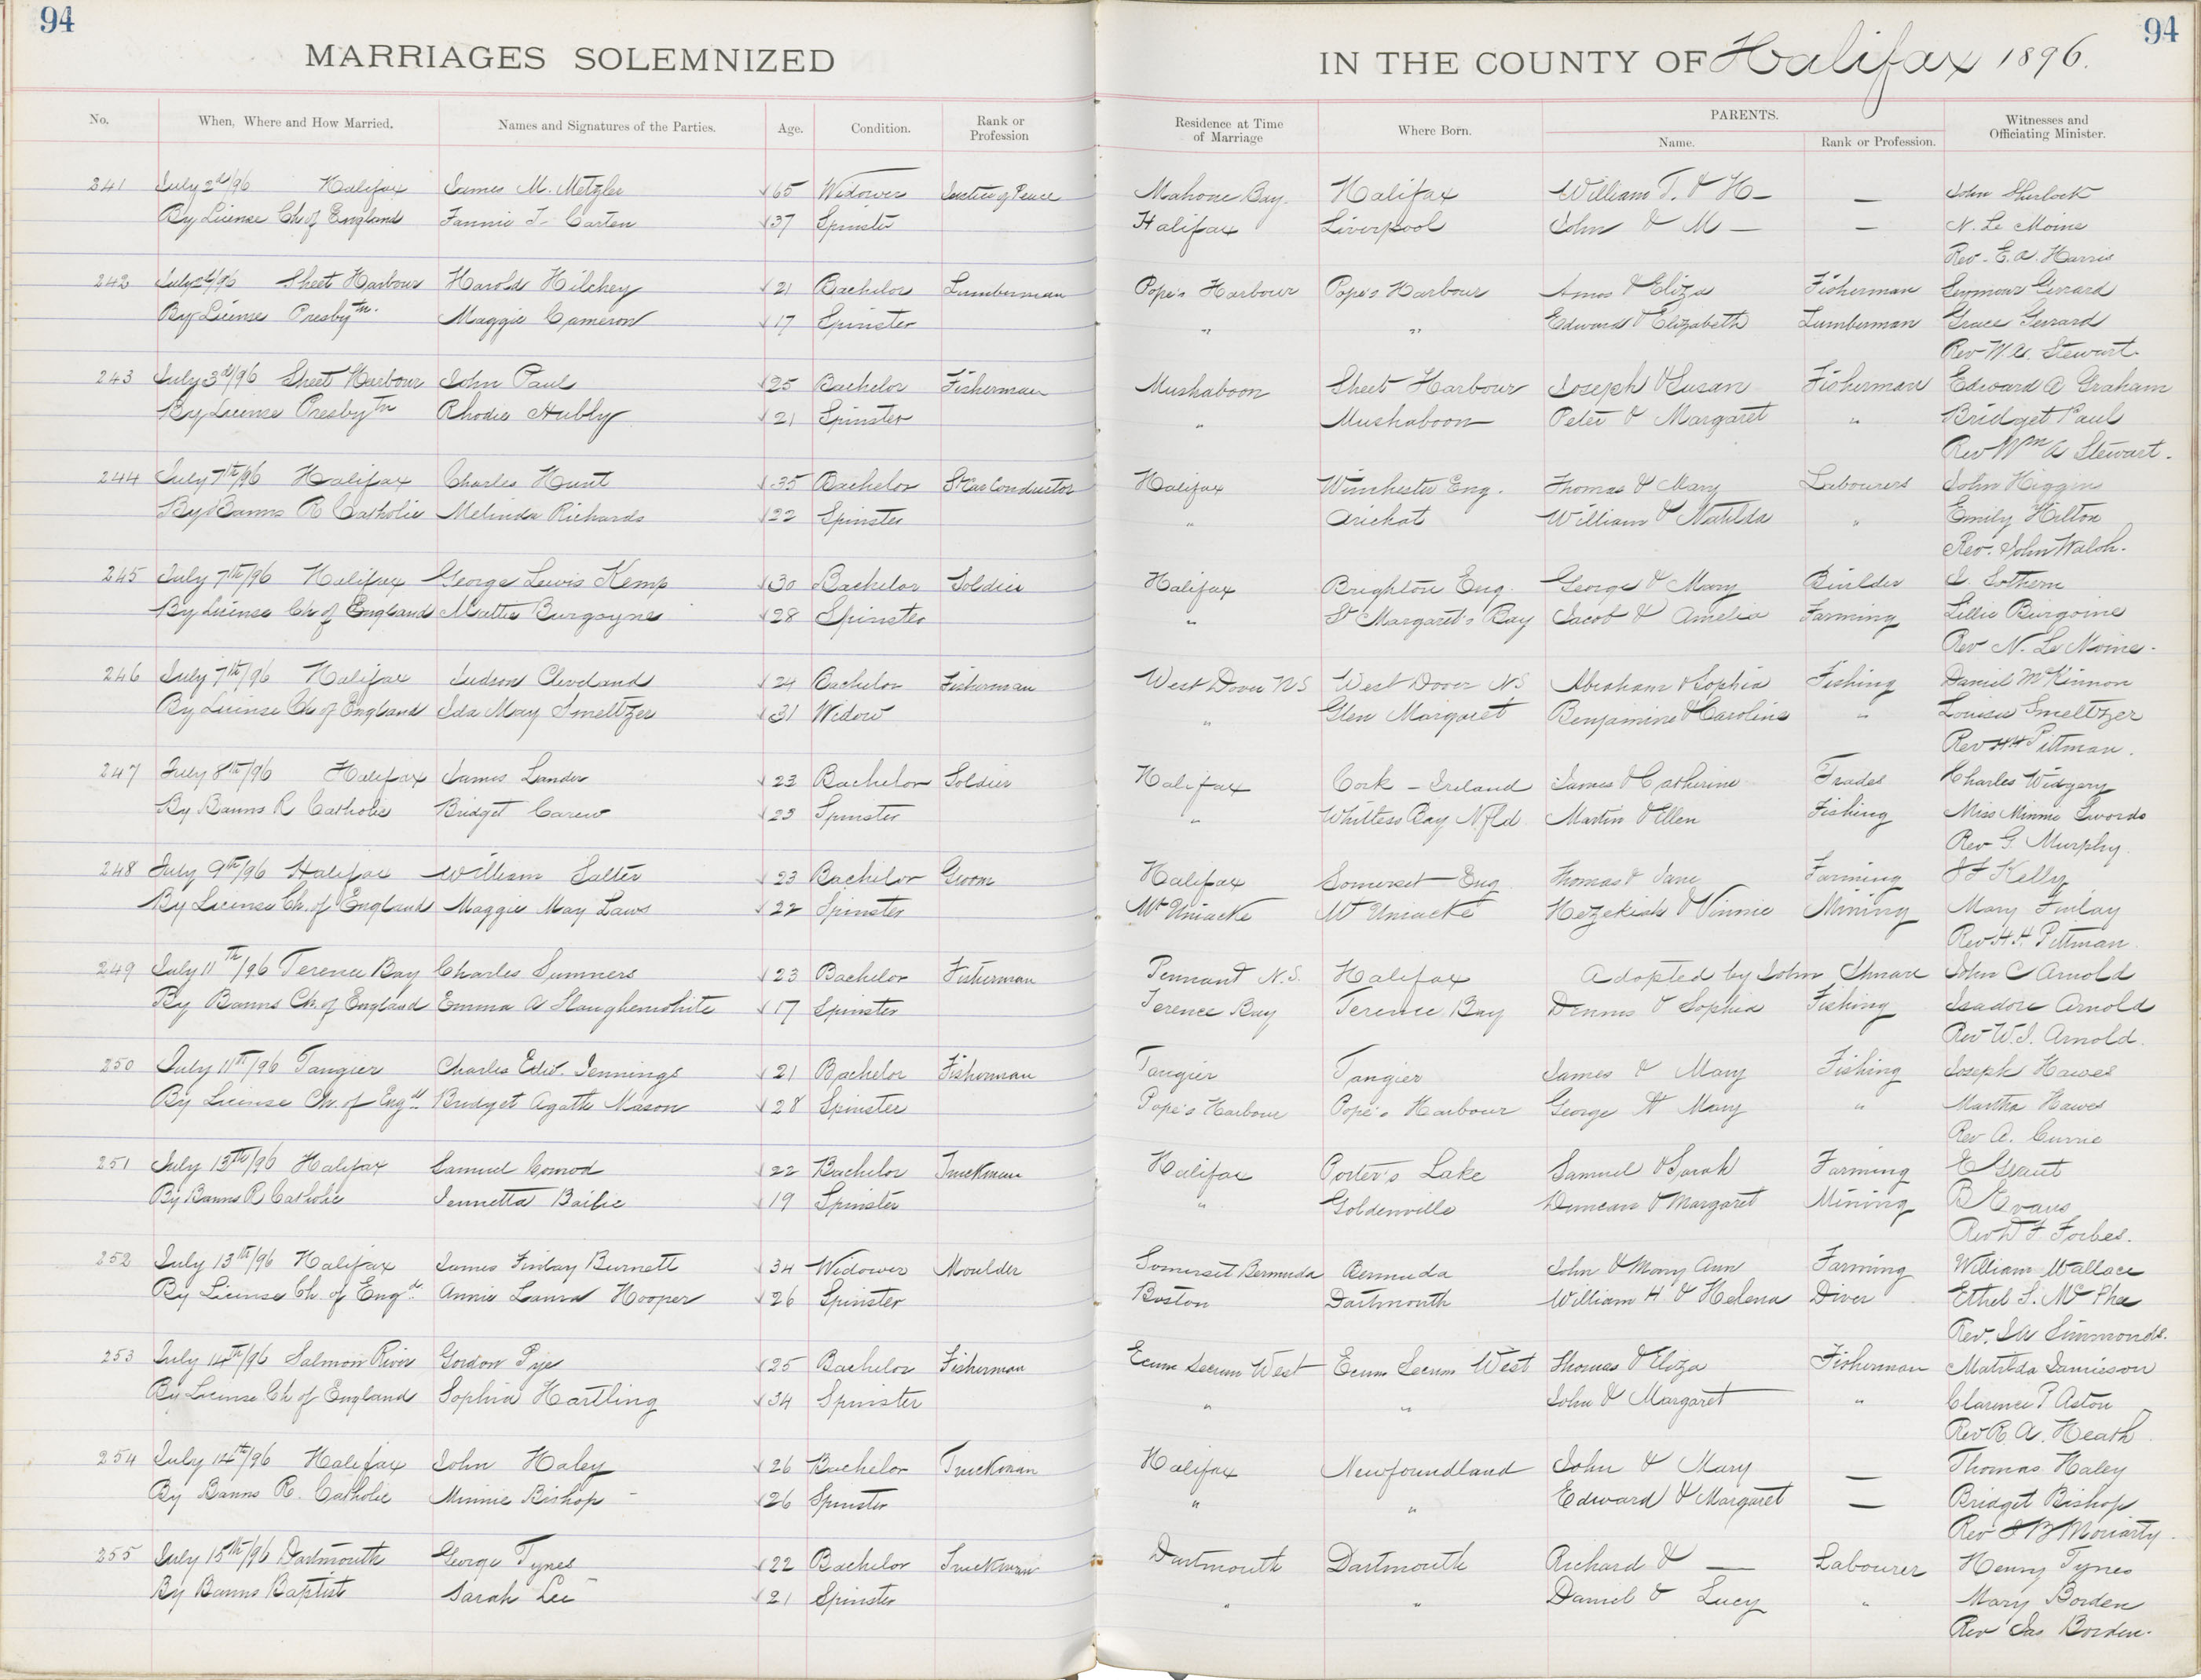 94
94
MARRIAGES SOLEMNIZED
IN THE COUNTY OF Halifax 1896.
No. When, Where and How Married. Names and Signatures of the Parties. Age. Condition. Rank or Profession Residence at Time of Marriage Where Born. PARENTS. Name. Rank or Profession. Witnesses and Officiating Minister.
241 July 2nd/96 Halifax James M. Metzler 65 Widower Justice of Peace Mahone Bay Halifax William T. & H — — John Sherlock
By License Ch of England Fannie J. Carten 37 Spinster Halifax Liverpool John & M — — N. Le Moine
Rev. E.A. Harris
242 /96 Sheet Harbour Harold Hilchey 21 Bachelor Lumberman Pope's Harbour Pope's Harbour Amos & Eliza Fisherman Seymour Gerrard
By License Presbytn. Maggie Cameron 17 Spinster " " Edward & Elizabeth Lumberman Grace Gerrard
Rev W.A. Stewart.
243 July 3rd/96 Sheet Harbour John Paul 25 Bachelor Fisherman Mushaboon Sheet Harbour Joseph & Susan Fisherman Edward A Graham
By License Presbytn Rhodie Hubbly 21 Spinster " Mushaboon Peter & Margaret " Bridget Paul
Rev Wm A Stewart.
244 July 7th/96 Halifax Charles Hunt 35 Bachelor St Car Conductor Halifax Winchester Eng. Thomas & Mary Labourers John Higgins
By Banns R Catholic Melinda Richards 22 Spinster " Arichat William & Matilda " Emily Hilton
Rev. John Walsh.
245 July 7th/96 Halifax George Lewis Kemp 30 Bachelor Soldier Halifax Brighton Eng. George & Mary Builder J. Sothern
By License Ch of England Mattie Burgoyne 28 Spinster " St Margaret's Bay Jacob & Amelia Farming Lillie Burgoine
Rev N. Le Moine.
246 July 7th/96 Halifax Judson Cleveland 24 Bachelor Fisherman West Dover NS West Dover NS Abraham & Sophia Fishing Daniel McKinnon
By License Ch of England Ida May Smeltzer 31 Widow " Glen Margaret Benjamine & Caroline " Louisa Smeltzer
Rev HH Pittman.
247 July 8th/96 Halifax James Lander 23 Bachelor Soldier Halifax Cork – Ireland James & Catherine Trades Charles Widgery
By Banns R Catholic Bridget Carew 23 Spinster " Whittess Bay Nfld Martin & Ellen Fishing Miss Minnie Swords
Rev G. Murphy.
248 July 9th/96 Halifax William Salter 23 Bachelor Groom Halifax Somerset Eng. Thomas & Jane Farming J F Kelly
By License Ch. of England Maggie May Laws 22 Spinster Mt Uniacke Mt Uniacke Hezekiah & Vinnie Mining Mary Finlay
Rev H.H. Pittman.
249 July 11th/96 Terence Bay Charles Sumners 23 Bachelor Fisherman Pennant N.S. Halifax Adopted by John Shnare John C Arnold
By Banns Ch. of England Emma A Slaughenwhite 17 Spinster Terence Bay Terence Bay Dennis & Sophia Fishing Isadore Arnold
Rev W.J. Arnold.
250 July 11th/96 Tangier Charles Edw. Jennings 21 Bachelor Fisherman Tangier Tangier James & Mary Fishing Joseph Hawes
By License Ch. of Engd Bridget Agath Mason 28 Spinster Pope's Harbour Pope's Harbour George & Mary " Martha Hawes
Rev A. Currie
251 July 13th/96 Halifax Samuel Conrod 22 Bachelor Truckman Halifax Porter's Lake Samuel & Sarah Farming E Grant
By Banns R Catholic Jennetta Bailie 19 Spinster " Goldenville Duncan & Margaret Mining B Evans
Rev D F Forbes.
252 July 13th/96 Halifax James Finlay Burnett 34 Widower Moulder Somerset Bermuda Bermuda John & Mary Ann Farming William Wallace
By License Ch. of Engd. Annie Laura Hooper 26 Spinster Boston Dartmouth William H & Helena Diver Ethel S. McPhee
Rev. J A Simmonds.
253 July 14th/96 Salmon River Gordon Pye 25 Bachelor Fisherman Ecum Secum West Ecum Secum West Thomas & Eliza Fisherman Matilda Jamieson
By License Ch of England Sophia Hartling 34 Spinster " " John & Margaret " Clarence P Aston
Rev R. A. Heath.
254 July 14th/96 Halifax John Haley 26 Bachelor Truckman Halifax Newfoundland John & Mary — Thomas Haley
By Banns R. Catholic Minnie Bishop 26 Spinster " " Edward & Margaret — Bridget Bishop
Rev Moriarty.
255 July 15th/96 Dartmouth George Tynes 22 Bachelor Truckman Dartmouth Dartmouth Richard & — Labourer Henry Tynes
By Banns Baptist Sarah Lee 21 Spinster " " Daniel & Lucy " Mary Borden
Rev Jas Borden.